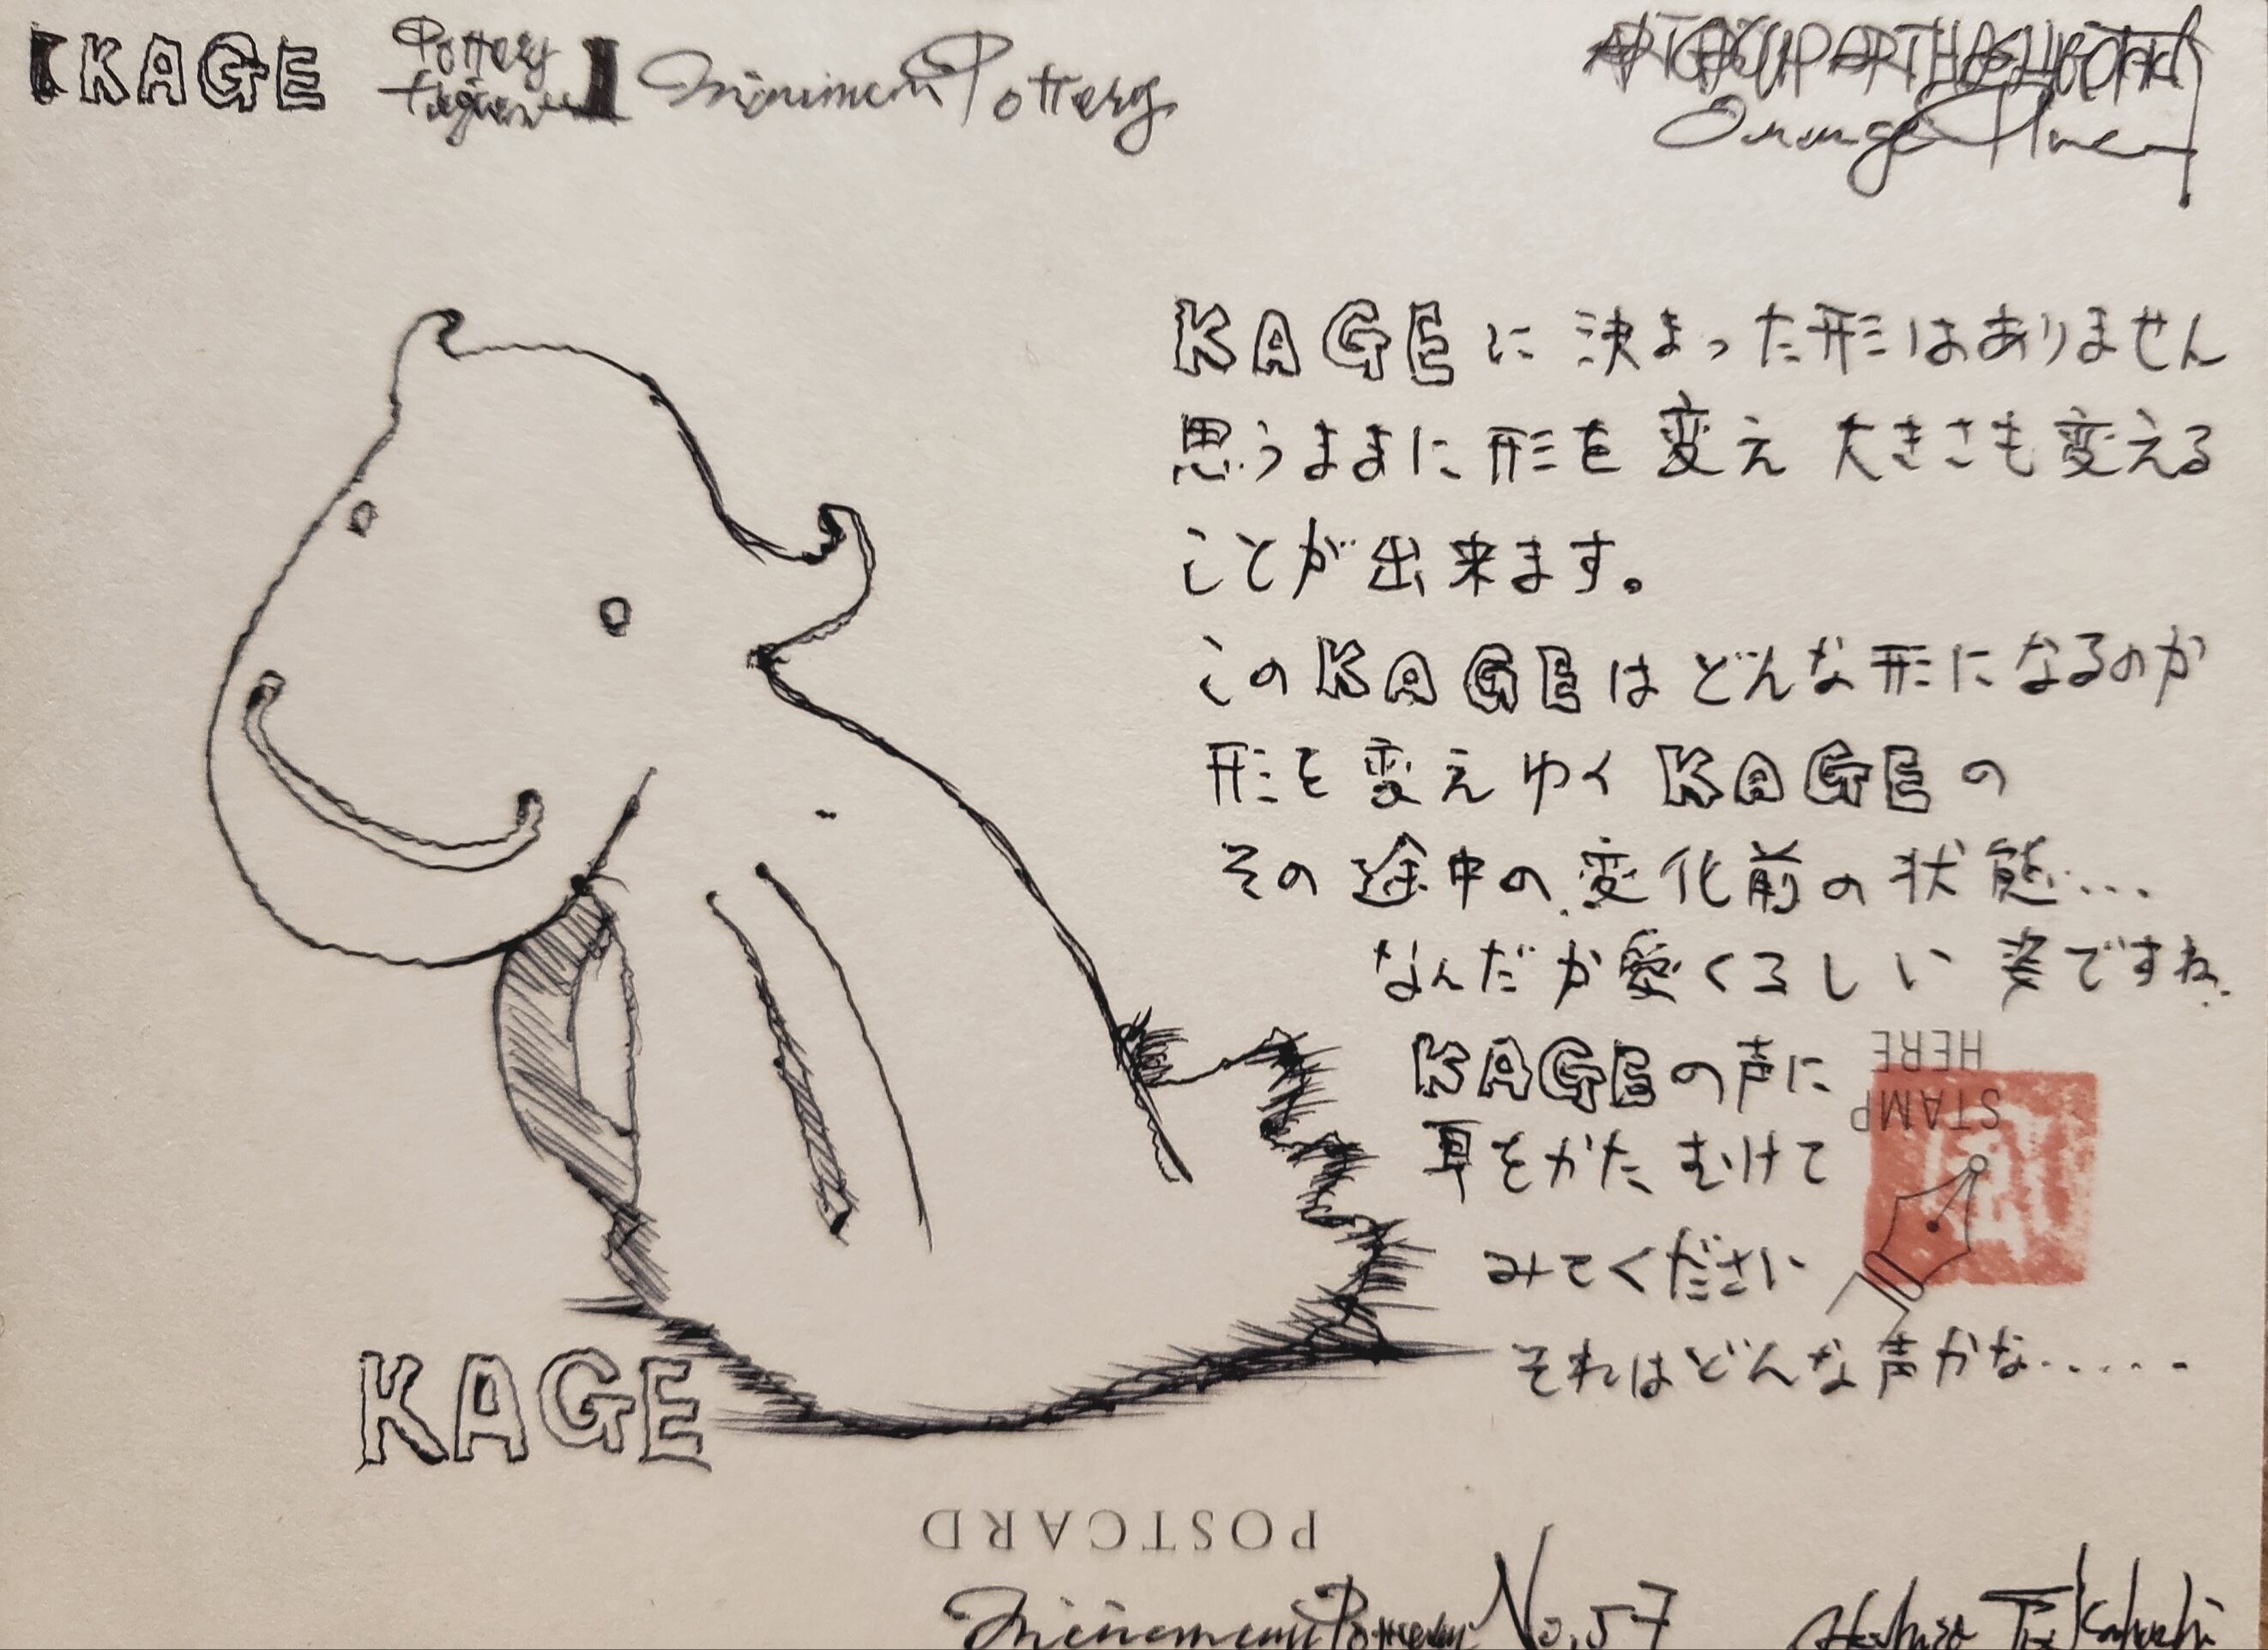 【KAGE Pottery figure】 Minimini Pottery
KAGEに決まった形はありません
思うままに形を変え 大きさも変える
ことが出来ます。
このKAGEはどんな形になるのか
形を変えゆくKAGEの
その途中の変化前の状態...
なんだか愛くるしい姿ですね.
KAGEの声に
耳をかたむけて
みてください
それはどんな声かな......
STAMP
HERE
KAGE
POSTCARD
Pottery No.57